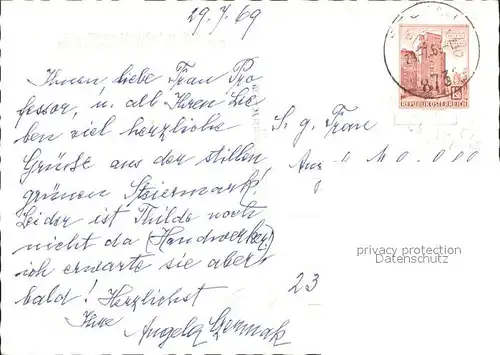 29. 7. 69
Ihnen, liebe Frau Pro
fessor, u. all Ihren Lie
ben viel herzliche
Grüße aus der stillen
grünen Steiermark!
Leider ist Thilde noch
nicht da (Handwerker)
ich erwarte sie aber
bald! Herzlichst
Ihre
Angela
S. g. Frau
23
873
REPUBLIK ÖSTERREICH
privacy protection
Datenschutz